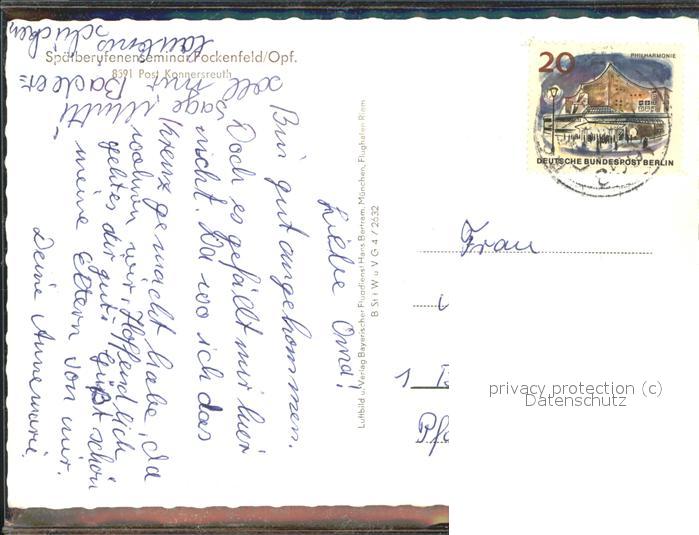 Spätberufenenseminar Fockenfeld/Opf.
8591 Post Konnersreuth
Liebe Oma!
Bin gut angekommen.
Doch es gefällt mir hier
nicht. Da wo ich das
Kreuz gemacht habe, da
wohnen wir. Hoffendlich
gehtes dir gut. Grüßt schön
meine Eltern von mir.
Deine Annemarie.
Mutti
sage
mir Badeer-
Luftbild u. Verlag Bayerischer Flugdienst Hans Bertram, München, Flughafen Riem
B St I W u V G 4 / 2632
20
PHILHARMONIE
DEUTSCHE BUNDESPOST BERLIN
Frau
1
privacy protection (c)
Datenschutz